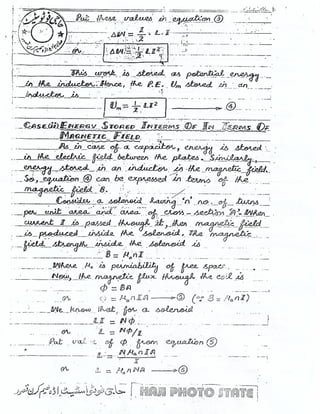 Put these values in equation ③
ΔW = I/2 · L·I
or ΔW = 1/2 L I²
This work is stored as potential energy
in the inductor. Hence, the P.E. Um stored in an
inductor is
Um = 1/2 L I² ④
CASE(ii) ENERGY STORED IN TERMS OF
MAGNETIC FIELD
As in case of a capacitor, energy is stored
in the electric field between the plates. Similarly,
energy stored in an inductor is the magnetic field.
So, equation ④ can be expressed in terms of the
magnetic field B.
Consider a solenoid having 'n' no of turns
per unit area and area of cross-section 'A'. When
current I is passed through it, then magnetic field
is produced inside the solenoid. The magnetic
field strength inside the solenoid is
B = μ₀nI
Where μ₀ is permiability of free space.
Now, the magnetic flux through the coil is
Φ = BA
or Φ = μ₀nIA ⑤ (∵ B = μ₀nI)
We know that, for a solenoid
LI = NΦ
or L = NΦ/I
Put value of Φ from equation ⑤
L = Nμ₀nIA/I
or L = μ₀nNA ⑥
HAJI PHOTO STATE